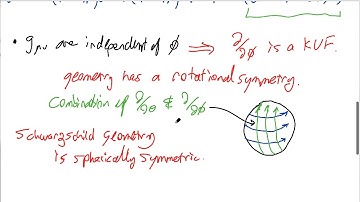 • gμν are independent of ϕ ⟹ ∂/∂ϕ is a KVF.
geometry has a rotational symmetry.
Combination of ∂/∂θ & ∂/∂ϕ
Schwarzschild Geometry
is spherically symmetric.